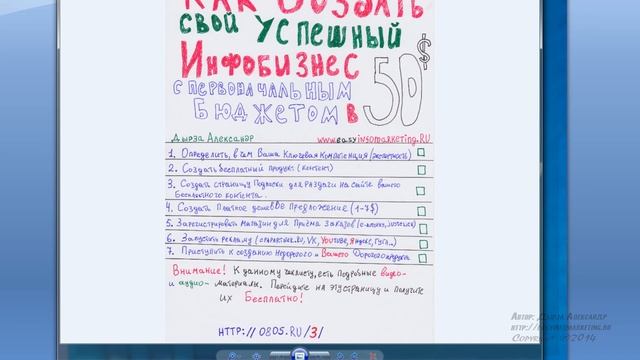 КАК СОЗДАТЬ
СВОЙ УСПЕШНЫЙ
ИНФОБИЗНЕС
С ПЕРВОНАЧАЛЬНЫМ
БЮДЖЕТОМ В 50$
Дырза Александр www.easyinfomarketing.RU
1. Определить, в чем Ваша Ключевая Компетенция
2. Создать бесплатный продукт (контент)
3. Создать страницу Подписки для раздачи на сайте вашего
бесплатного контента.
4. Создать Платное дешевое предложение (1-7$)
5. Зарегистрировать магазин для Приёма Заказов
6. Запустить рекламу (VK, YouTube, Яндекс, Гугл...)
7. Приступить к созданию Недорогого и Вашего Дорогого продукта
Внимание! К данному чеклисту, есть подробные видео-
и аудио- материалы. Перейдите на эту страницу и получите
их Бесплатно!
HTTP://0805.RU/3/
Автор: Дырза Александр
Copyright ©2014